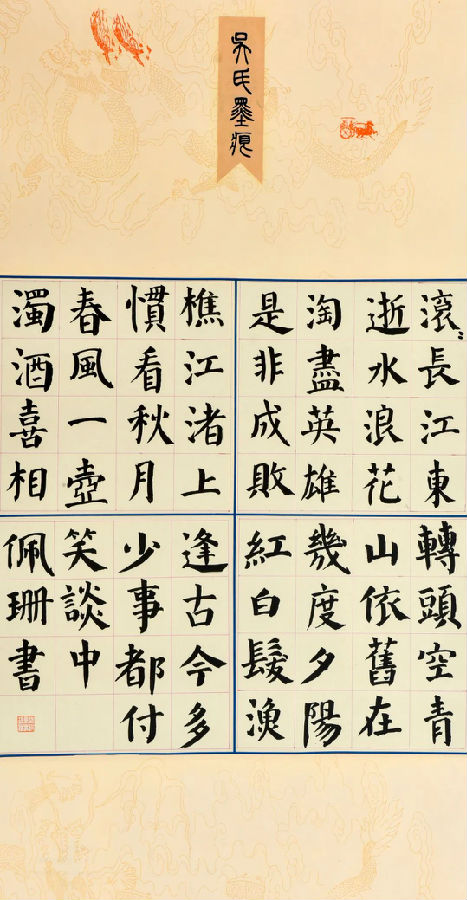 吳氏墨痕
滾〻長江東
逝水浪花
淘盡英雄
是非成敗
轉頭空青
山依舊在
幾度夕陽
紅白髮漁
樵江渚上
慣看秋月
春風一壺
濁酒喜相
逢古今多
少事都付
笑談中
佩珊書